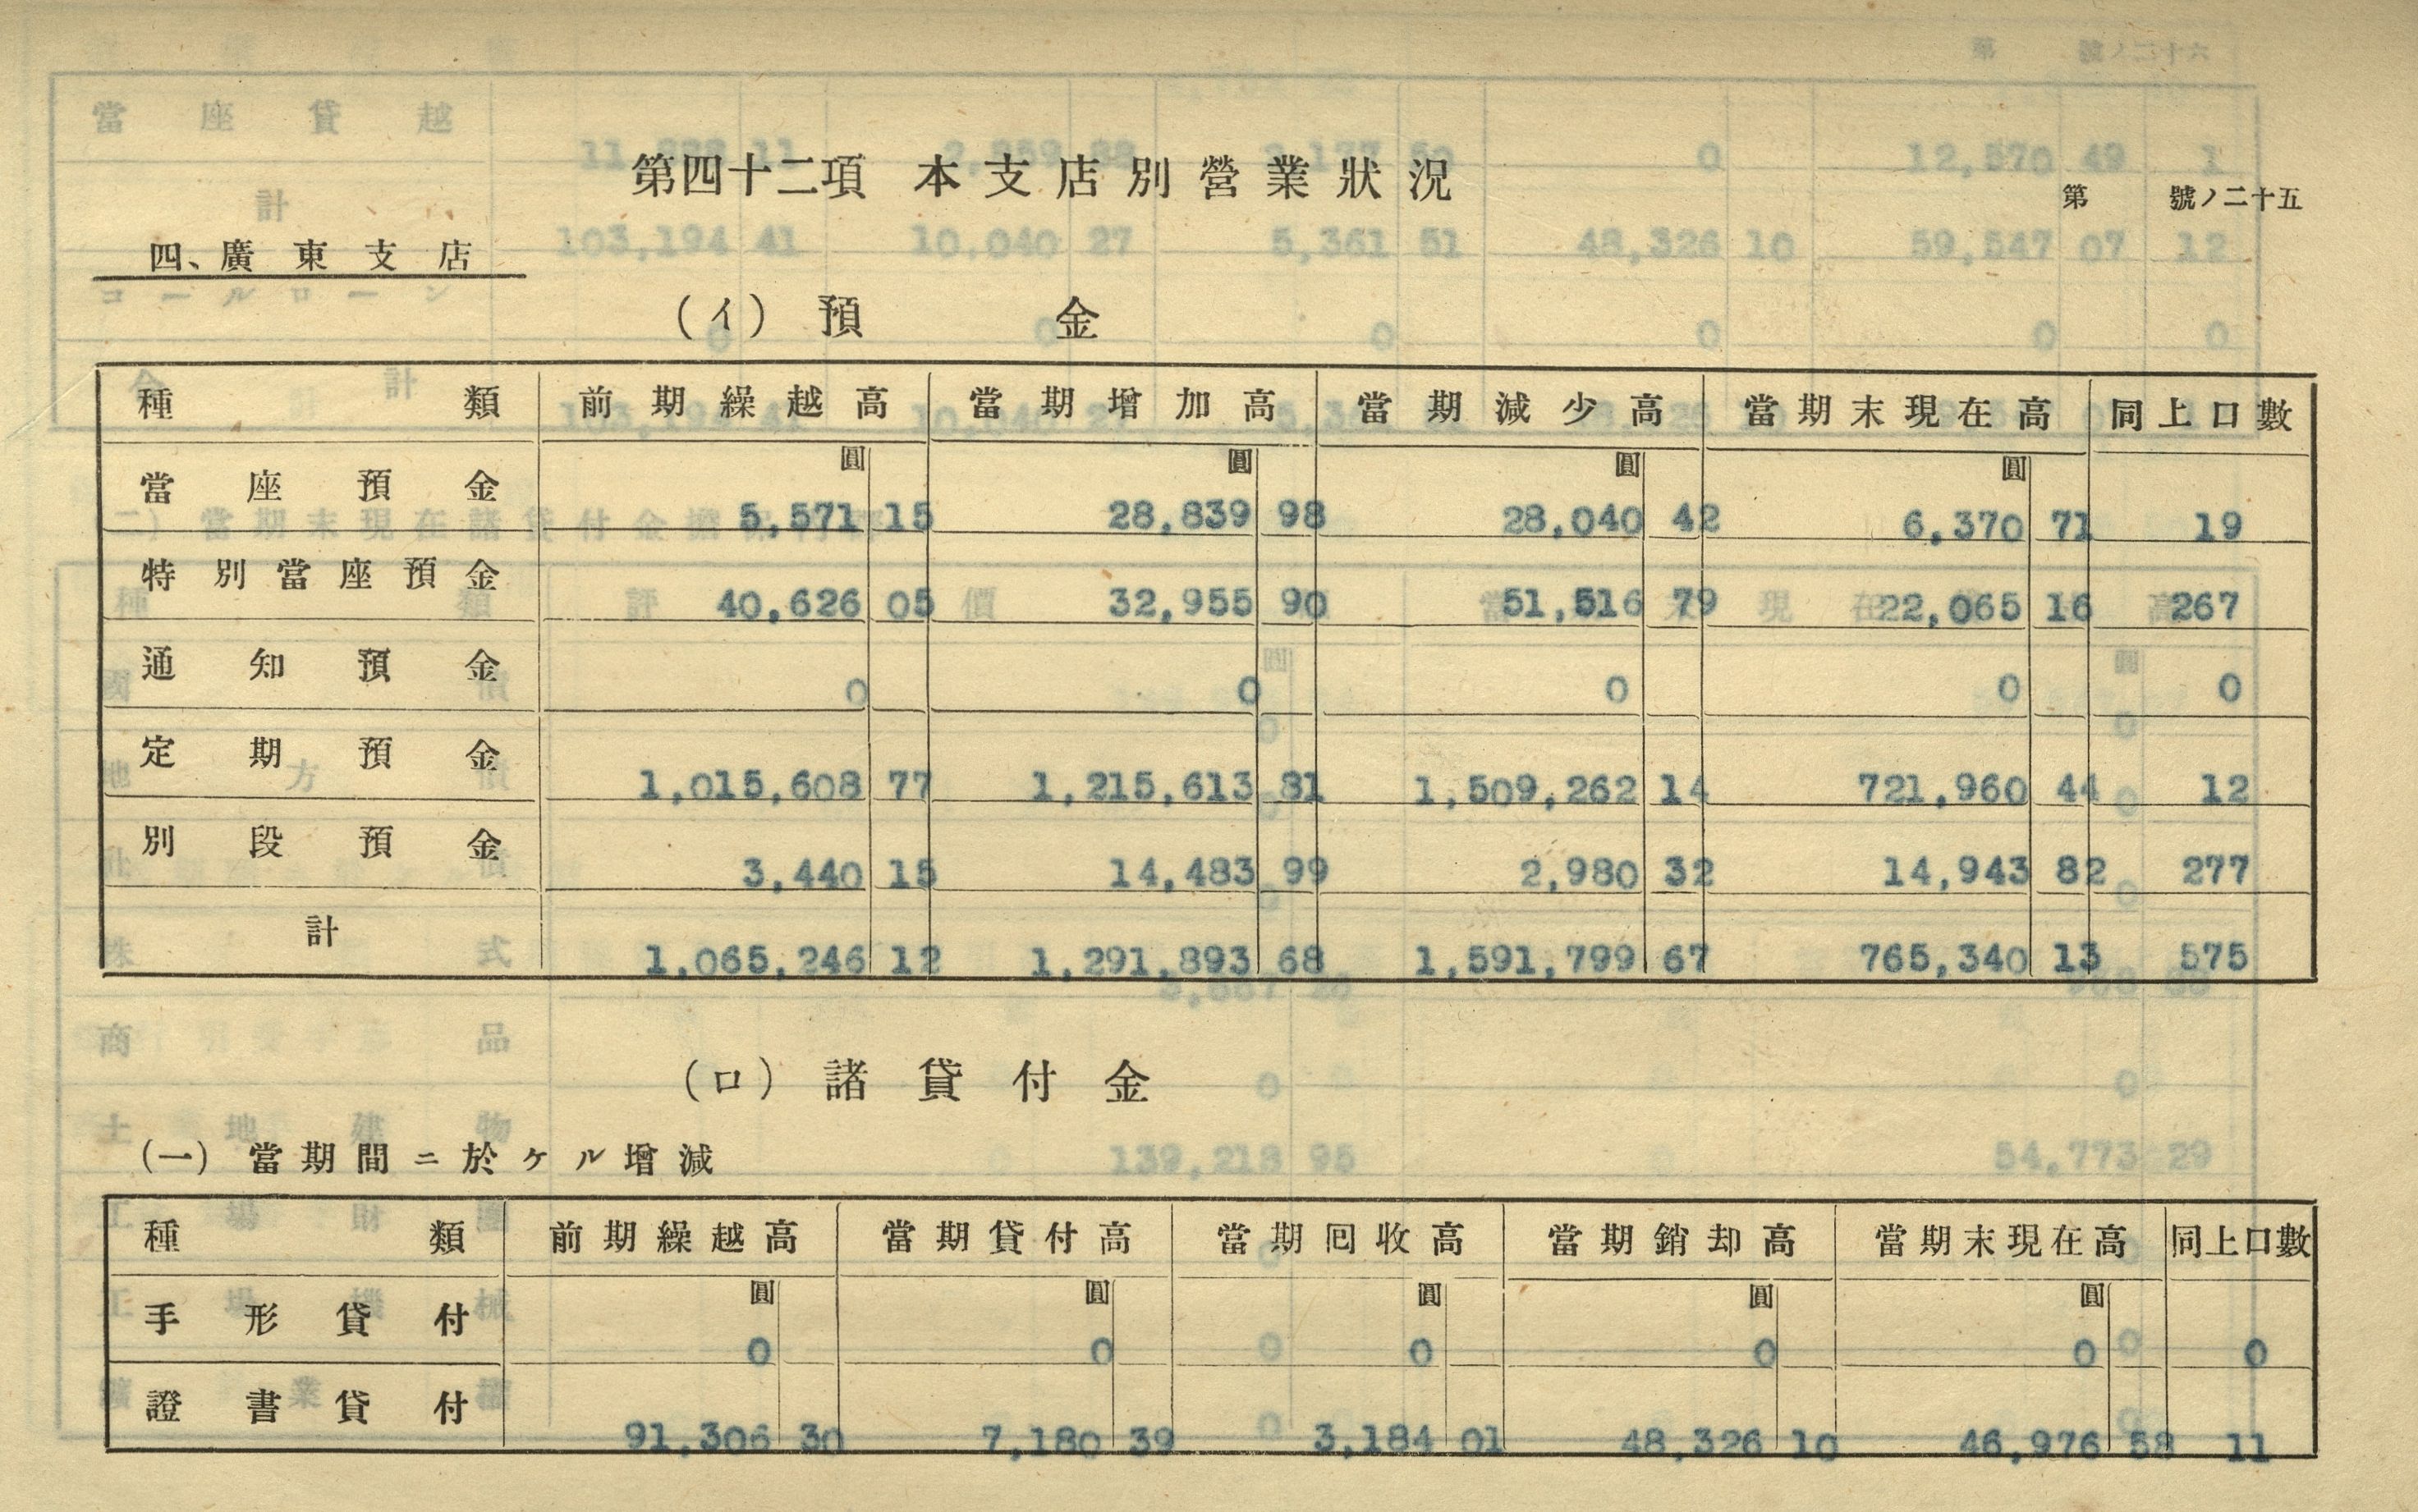 第四十二項 本支店別營業狀況
第 號ノ二十五
四、廣東支店
(イ) 預金
種類 前期繰越高 當期增加高 當期減少高 當期末現在高 同上口數
圓 圓 圓 圓
當座預金 5,571 15 28,839 98 28,040 42 6,370 71 19
特別當座預金 40,626 05 32,955 90 51,516 79 22,065 16 267
通知預金 0 0 0 0 0
定期預金 1,015,608 77 1,215,613 81 1,509,262 14 721,960 44 12
別段預金 3,440 15 14,483 99 2,980 32 14,943 82 277
計 1,065,246 12 1,291,893 68 1,591,799 67 765,340 13 575
(ロ) 諸貸付金
(一) 當期間ニ於ケル增減
種類 前期繰越高 當期貸付高 當期回收高 當期銷却高 當期末現在高 同上口數
圓 圓 圓 圓 圓
手形貸付 0 0 0 0 0 0
證書貸付 91,306 30 7,180 39 3,184 01 48,326 10 46,976 58 11